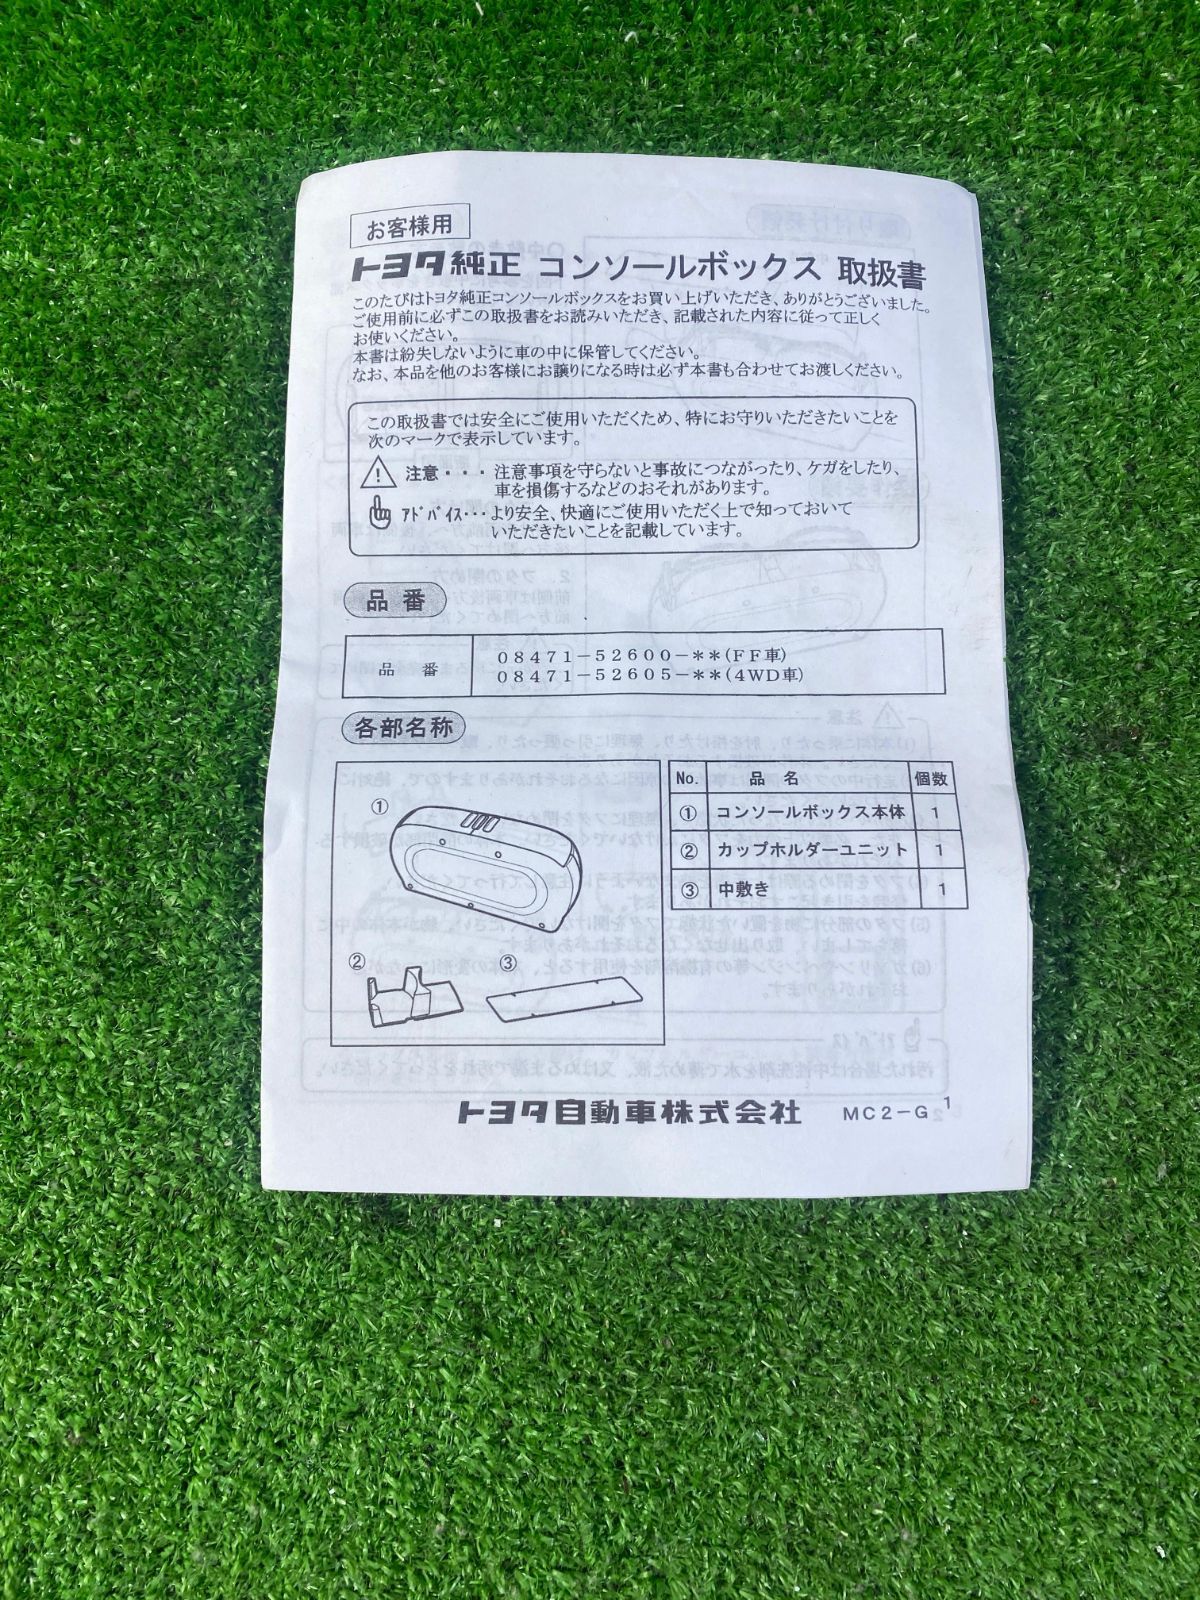 お客様用
トヨタ純正 コンソールボックス 取扱書
このたびはトヨタ純正コンソールボックスをお買い上げいただき、ありがとうございました。
ご使用前に必ずこの取扱書をお読みいただき、記載された内容に従って正しく
お使いください。
本書は紛失しないように車の中に保管してください。
なお、本品を他のお客様にお譲りになる時は必ず本書も合わせてお渡しください。
この取扱書では安全にご使用いただくため、特にお守りいただきたいことを
次のマークで表示しています。
注意・・・ 注意事項を守らないと事故につながったり、ケガをしたり、
車を損傷するなどのおそれがあります。
ｱﾄﾞﾊﾞｲｽ・・・より安全、快適にご使用いただく上で知っておいて
いただきたいことを記載しています。
品番
品 番 08471-52600-**(FF車)
08471-52605-**(4WD車)
各部名称
No. 品 名 個数
① コンソールボックス本体 1
② カップホルダーユニット 1
③ 中敷き 1
①
② ③
トヨタ自動車株式会社 MC2-G 1